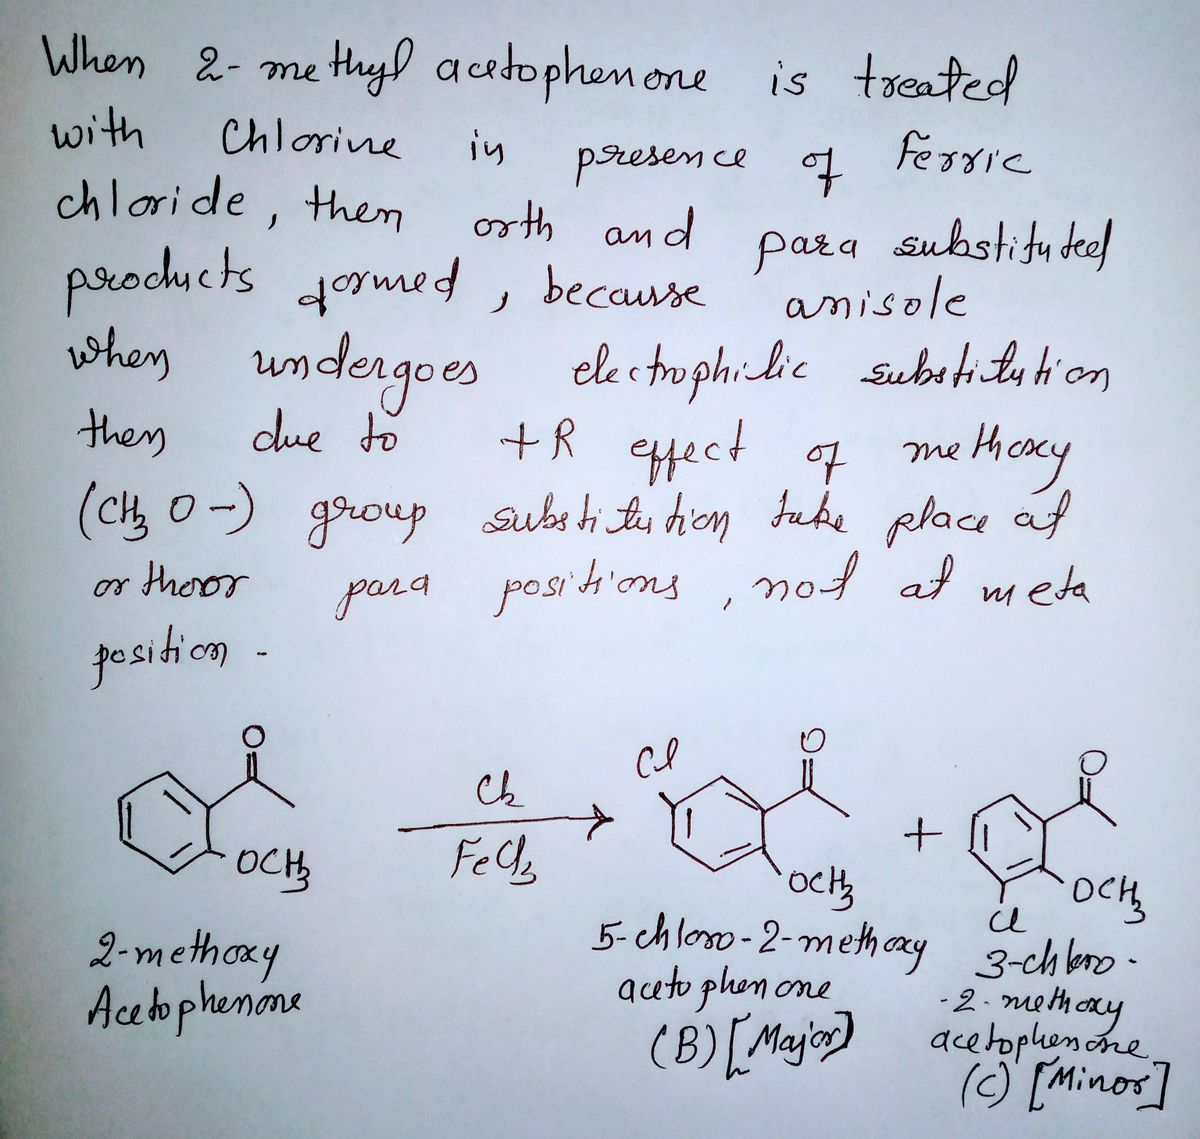 When 2-methyl acetophenone is treated
with Chlorine in presence of Ferric
chloride, then orth and para substituted
products formed, because anisole
when undergoes electrophilic substitution
then due to +R effect of methoxy
(CH3 O-) group substitution take place at
orthoor para positions, not at meta
position -
O
OCH3
Cl2
FeCl3
Cl
O
OCH3
+
O
OCH3
Cl
2-methoxy
Acetophenone
5-chloro-2-methoxy
acetophenone
(B) [Major]
3-chloro-
-2-methoxy
acetophenone
(C) [Minor]